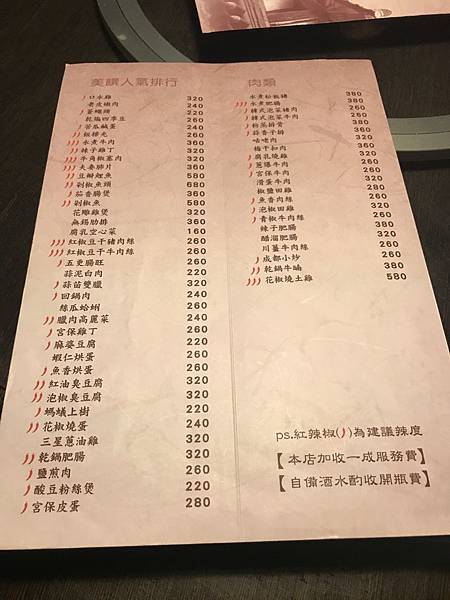 美饌人氣排行
口水雞 320
老皮嫩肉 240
蒼蠅頭 220
乾煸四季豆 260
苦瓜鹹蛋 240
椒麻
水煮牛肉 360
辣子雞丁 320
牛角椒塞肉 320
夫妻肺片 360
豆瓣鯉魚 580
剁椒魚頭 680
茄香腸煲 360
剁椒魚 580
花雕雞煲 320
無錫肋排 360
腐乳空心菜 160
紅椒豆干豬肉絲 260
紅椒豆干牛肉絲 260
五更腸旺 260
蒜泥白肉 220
蒜苗雙臘 320
回鍋肉 240
絲瓜蛤蜊 260
臘肉高麗菜 240
宮保雞丁 260
麻婆豆腐 220
蝦仁烘蛋 260
魚香烘蛋 260
紅油臭豆腐 320
泡椒臭豆腐 320
螞蟻上樹 220
花椒燒蛋 240
三星蔥油雞 320
乾鍋肥腸 320
鹽煎肉 260
酸豆粉絲煲 220
宮保皮蛋 280
肉類
水煮松板豬 380
水煮肥腸 380
韓式泡菜豬肉 260
韓式泡菜牛肉 260
粉蒸排骨
蒜香子排
咕咾肉
梅干扣肉
腐乳燒雞
蔥爆牛肉
宮保牛肉
滑蛋牛肉
椒鹽田雞
魚香肉絲
泡椒田雞
青椒牛肉絲
辣子肥腸
醋溜肥腸
川薑牛肉絲 260
成都小炒 260
乾鍋牛腩 380
花椒燒土雞 580
ps.紅辣椒( )為建議辣度
【本店加收一成服務費】
【自備酒水酌收開瓶費】